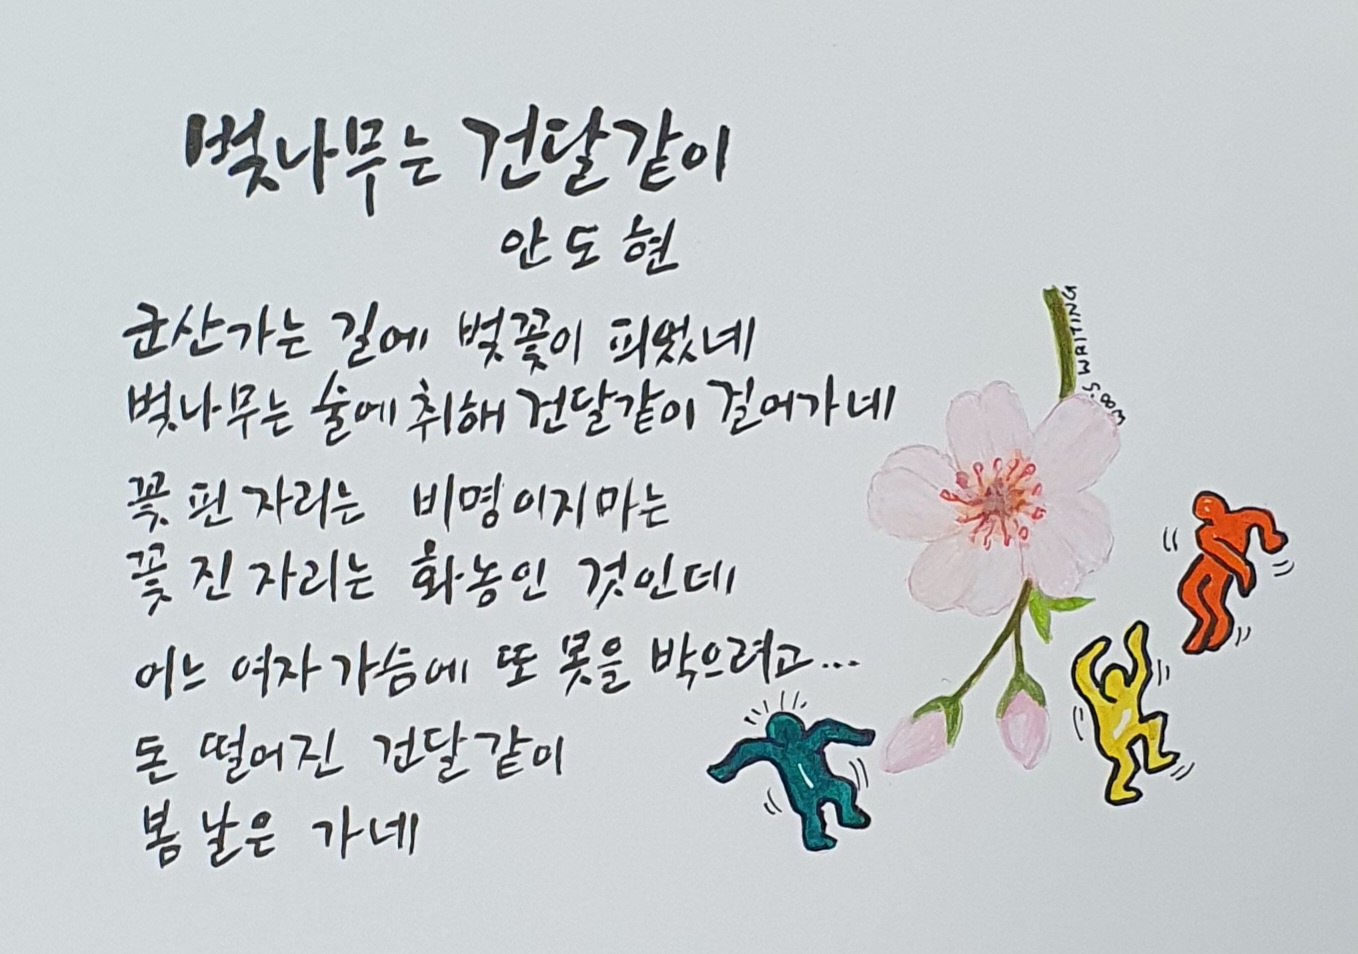 벚나무는 건달같이
안도현
군산가는 길에 벚꽃이 피었네
벚나무는 술에 취해 건달같이 걸어가네
꽃 핀 자리는 비명이지마는
꽃 진 자리는 화농인 것인데
어느 여자 가슴에 또 못을 박으려고...
돈 떨어진 건달같이
봄날은 가네
WRITING